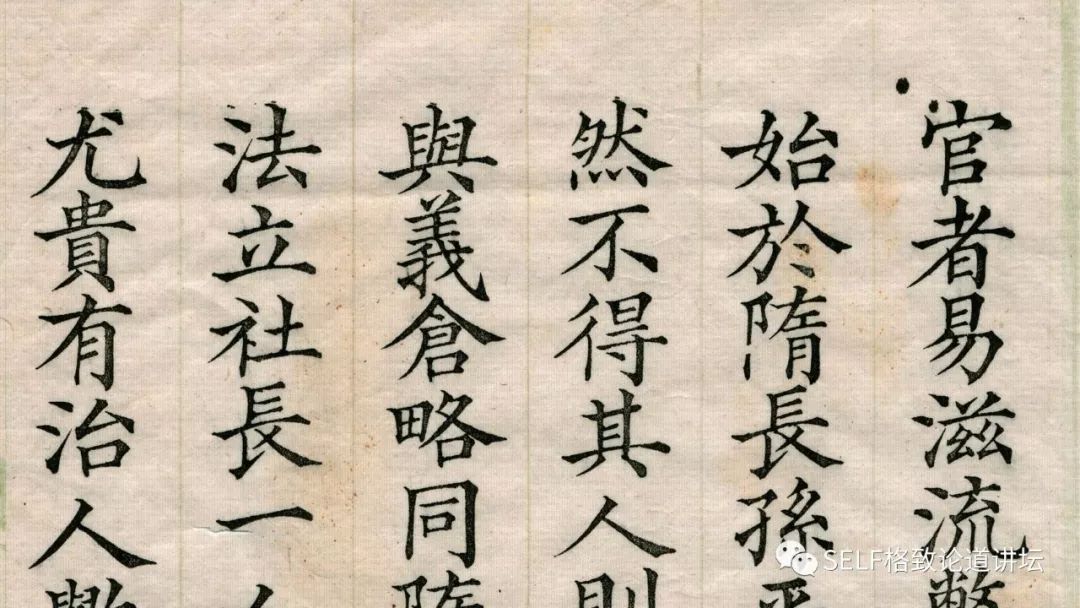 官者易滋流弊
始於隋長孫
然不得其人則
與義倉略同隋
法立社長一
尤貴有治人
SELF格致论道讲坛